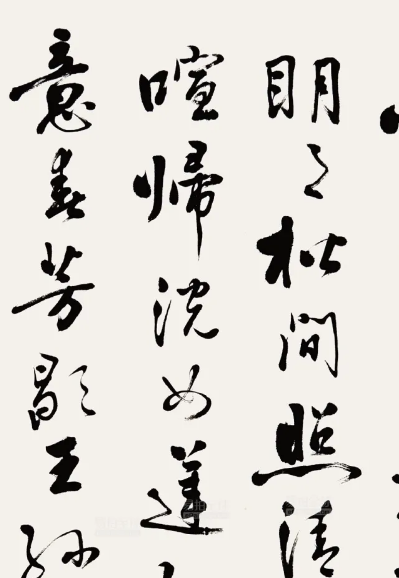 明月松間照清
喧歸浣女蓮
意春芳歇王孫